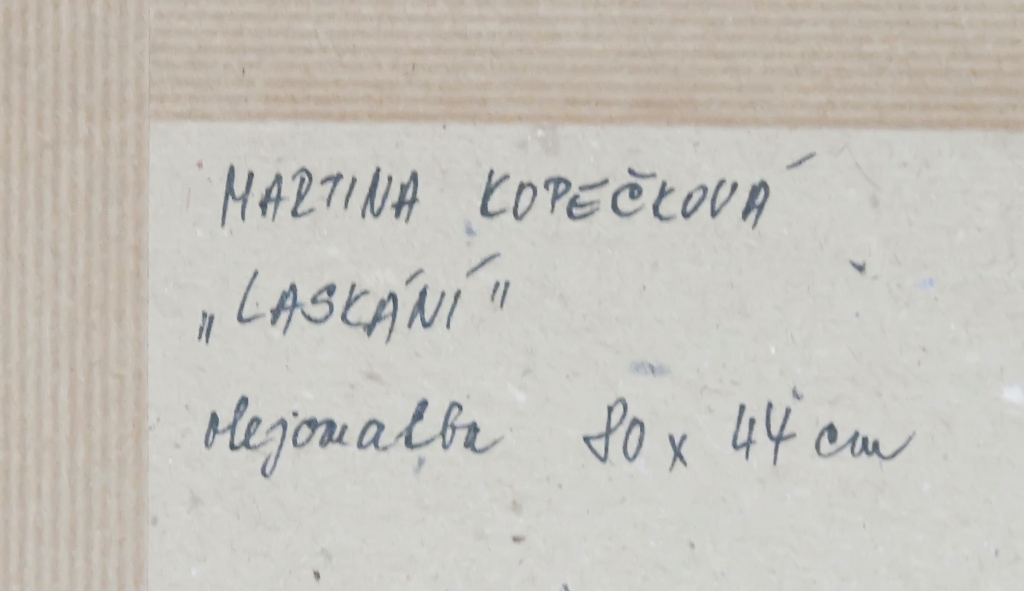 MARTINA KOPEČKOVÁ
„LASKÁNÍ"
olejomalba 80 x 44 cm